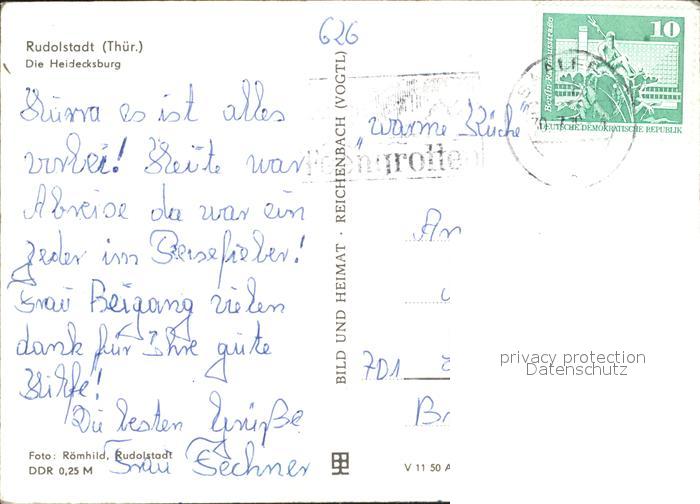 626
Rudolstadt (Thür.)
Die Heidecksburg
Hurra es ist alles
vorbei! Heute war
Abreise da war ein
jeder im Reisefieber!
Frau Beigang vielen
dank für Ihre gute
Hilfe!
Die besten Grüße
Frau Fechner
Foto: Römhild, Rudolstadt
DDR 0,25 M
BILD UND HEIMAT · REICHENBACH (VOGTL)
V 11 50 A
10
Berlin, Rathausstraße
DEUTSCHE DEMOKRATISCHE REPUBLIK
SAALFE
grotte
"warme Küche
An
701
privacy protection
Datenschutz